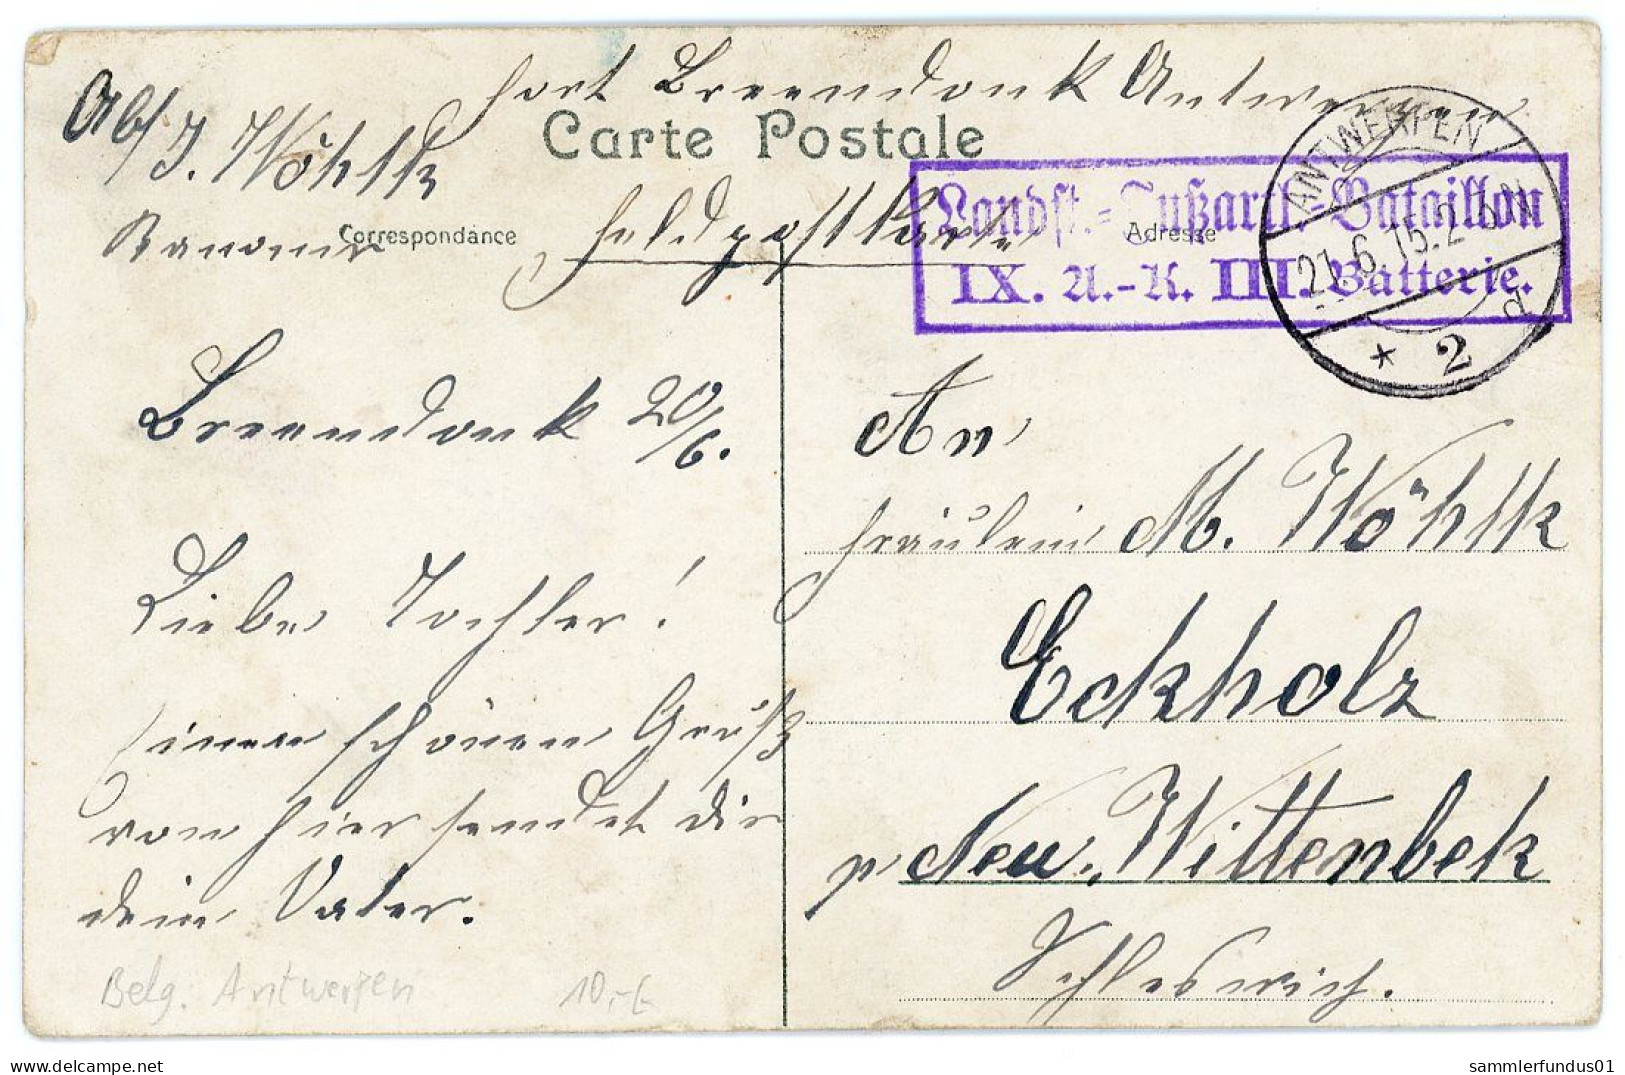 Fort Breendonk Antwerpen
Abs/ J. Wöhlk
Carte Postale
Kanonier
Correspondance
Feldpostkarte
Adresse
Landst.-Fußartl.-Bataillon
IX. A.-K. III. Batterie.
ANTWERPEN
21.6.15.2-3 N
* 2 d
Breendonk 20/6.
Liebe Tochter!
Einen schönen Gruß
von hier sendet dir
dein Vater.
An
Fräulein M. Wöhlk
Eckholz
p Neu. Wittenbek
Schleswich.
Belg. Antwerpen 10,-€
www.delcampe.net
sammlerfundus01